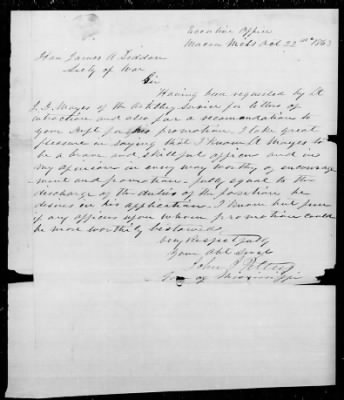 Executive Office
Macon Miss Oct 22nd 1863
Hon James A Seddon
Secty of War
Sir
Having been requested by Lt
J. D. Mayes of the for letters of
introduction and also for a recommendation to
your Dept for his promotion. I take great
pleasure in saying that I know Lt Mayes to
be a brave and skillful officer and in
my opinion in every way worthy of encourage
ment and promotion. fully equal to the
discharge of the duties of the position he
desires in his application. I know but few
if any officers upon whom promotion could
be more worthily bestowed.
Very Respectfully
Your Obt Servt
John J. Pettus
Gov of Mississippi